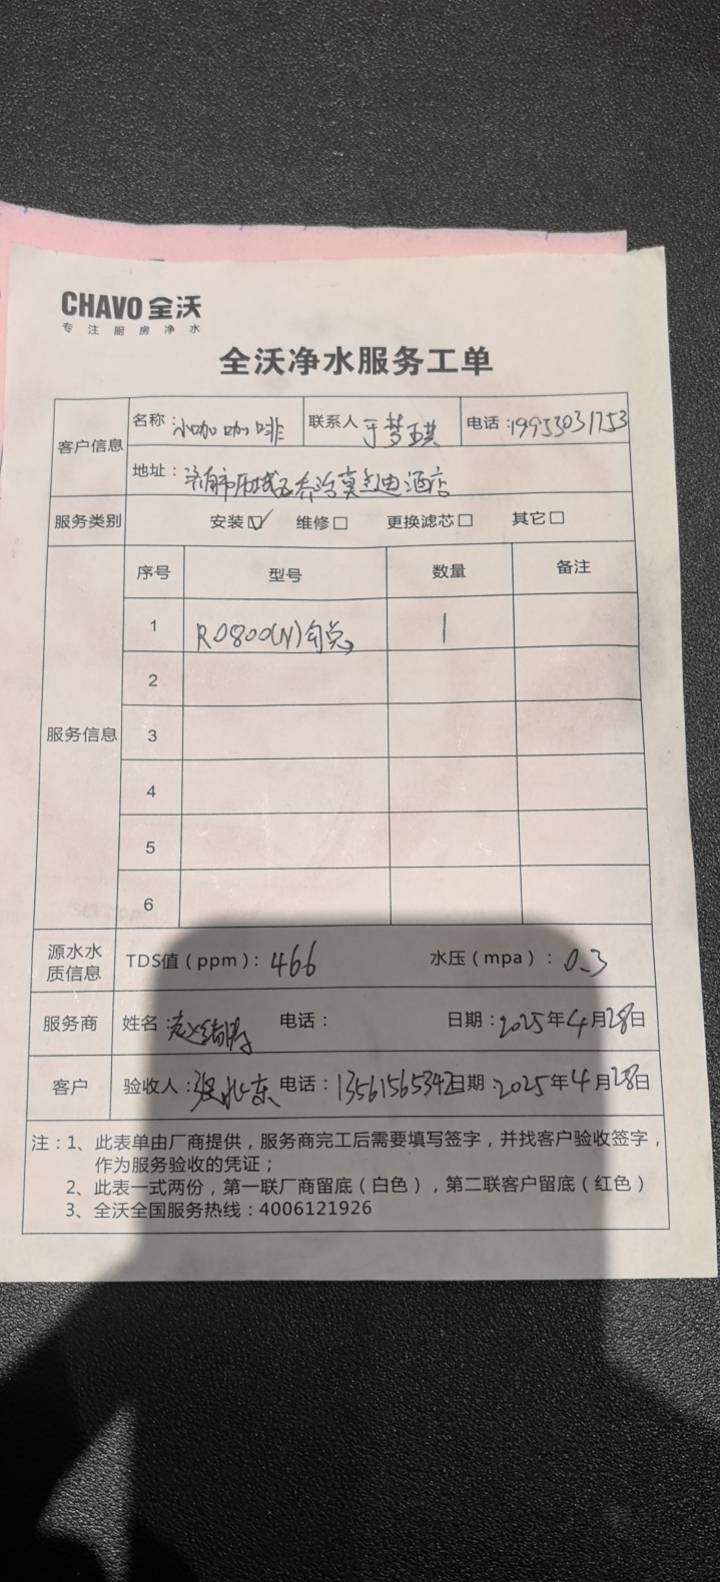 CHAVO 全沃
专注厨房净水
全沃净水服务工单
客户信息
名称 小咖咖啡 联系人 于梦琪 电话:19953031753
地址：济南市历城区乔治莫兰迪酒店
服务类别 安装☑ 维修□ 更换滤芯□ 其它□
服务信息
序号 型号 数量 备注
1 RO800(N) 1
2
3
4
5
6
源水水质信息 TDS值（ppm）：466 水压（mpa）：0.3
服务商 姓名： 电话： 日期：2025年4月28日
客户 验收人：张兆东 电话：13561565342 日期：2025年4月28日
注：1、此表单由厂商提供，服务商完工后需要填写签字，并找客户验收签字，
作为服务验收的凭证；
2、此表一式两份，第一联厂商留底（白色），第二联客户留底（红色）
3、全沃全国服务热线：4006121926